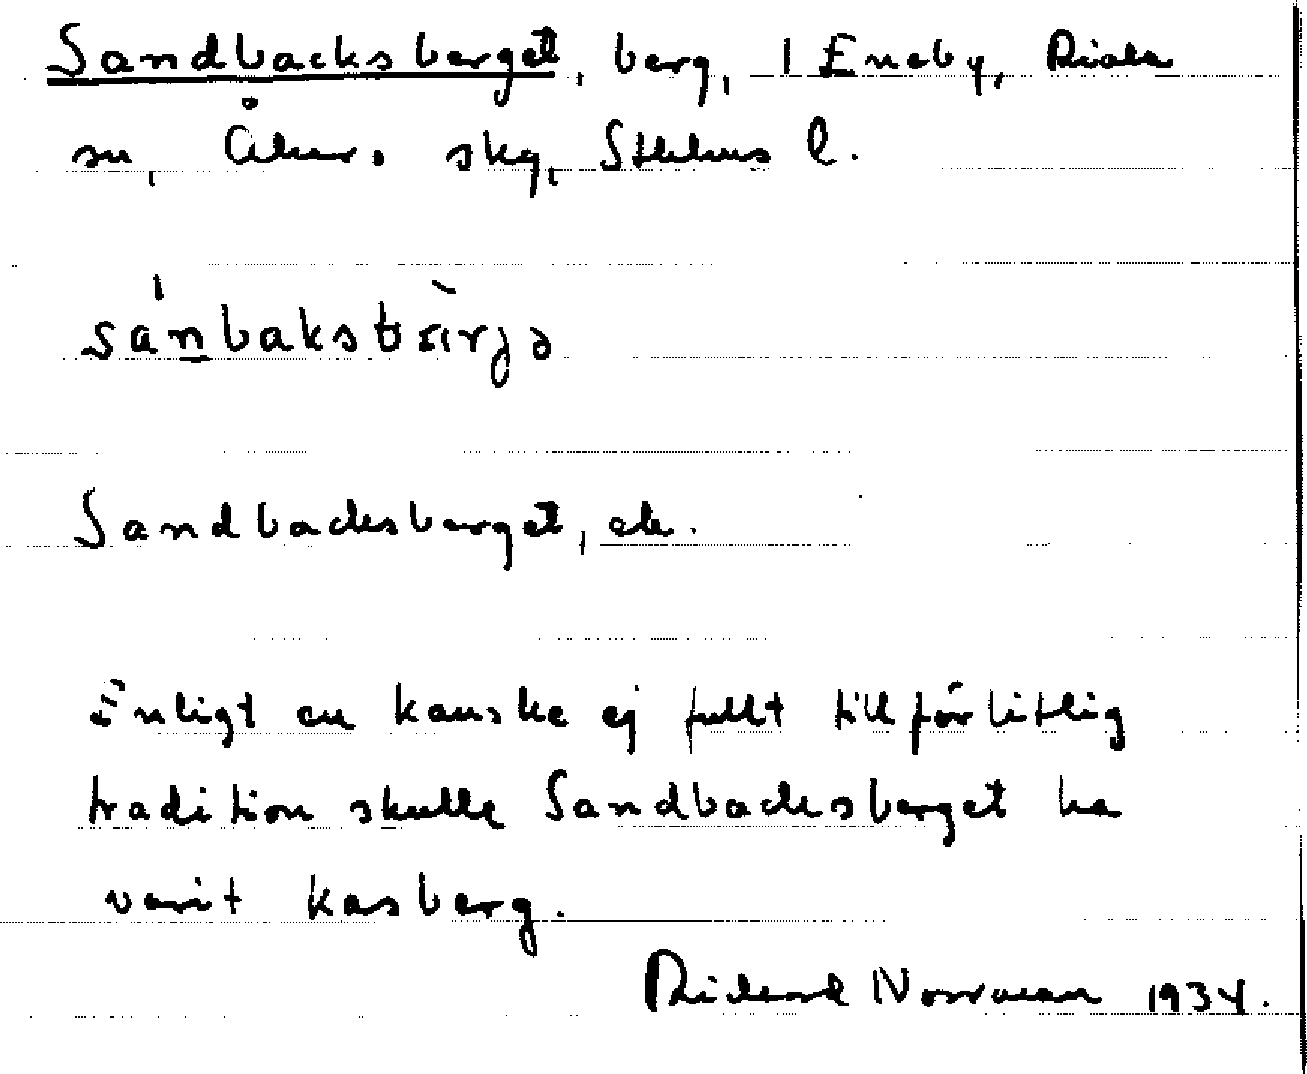 Sandbacksberget, berg, 1 Eneby, Riala
sn, Åkers skg, Sthlms l.
sánbaksbàrjə
Sandbacksberget, ek.
Enligt en kanske ej fullt tillförlitlig
tradition skulle Sandbacksberget ha
varit kasberg.
Rickard Norrman 1934.